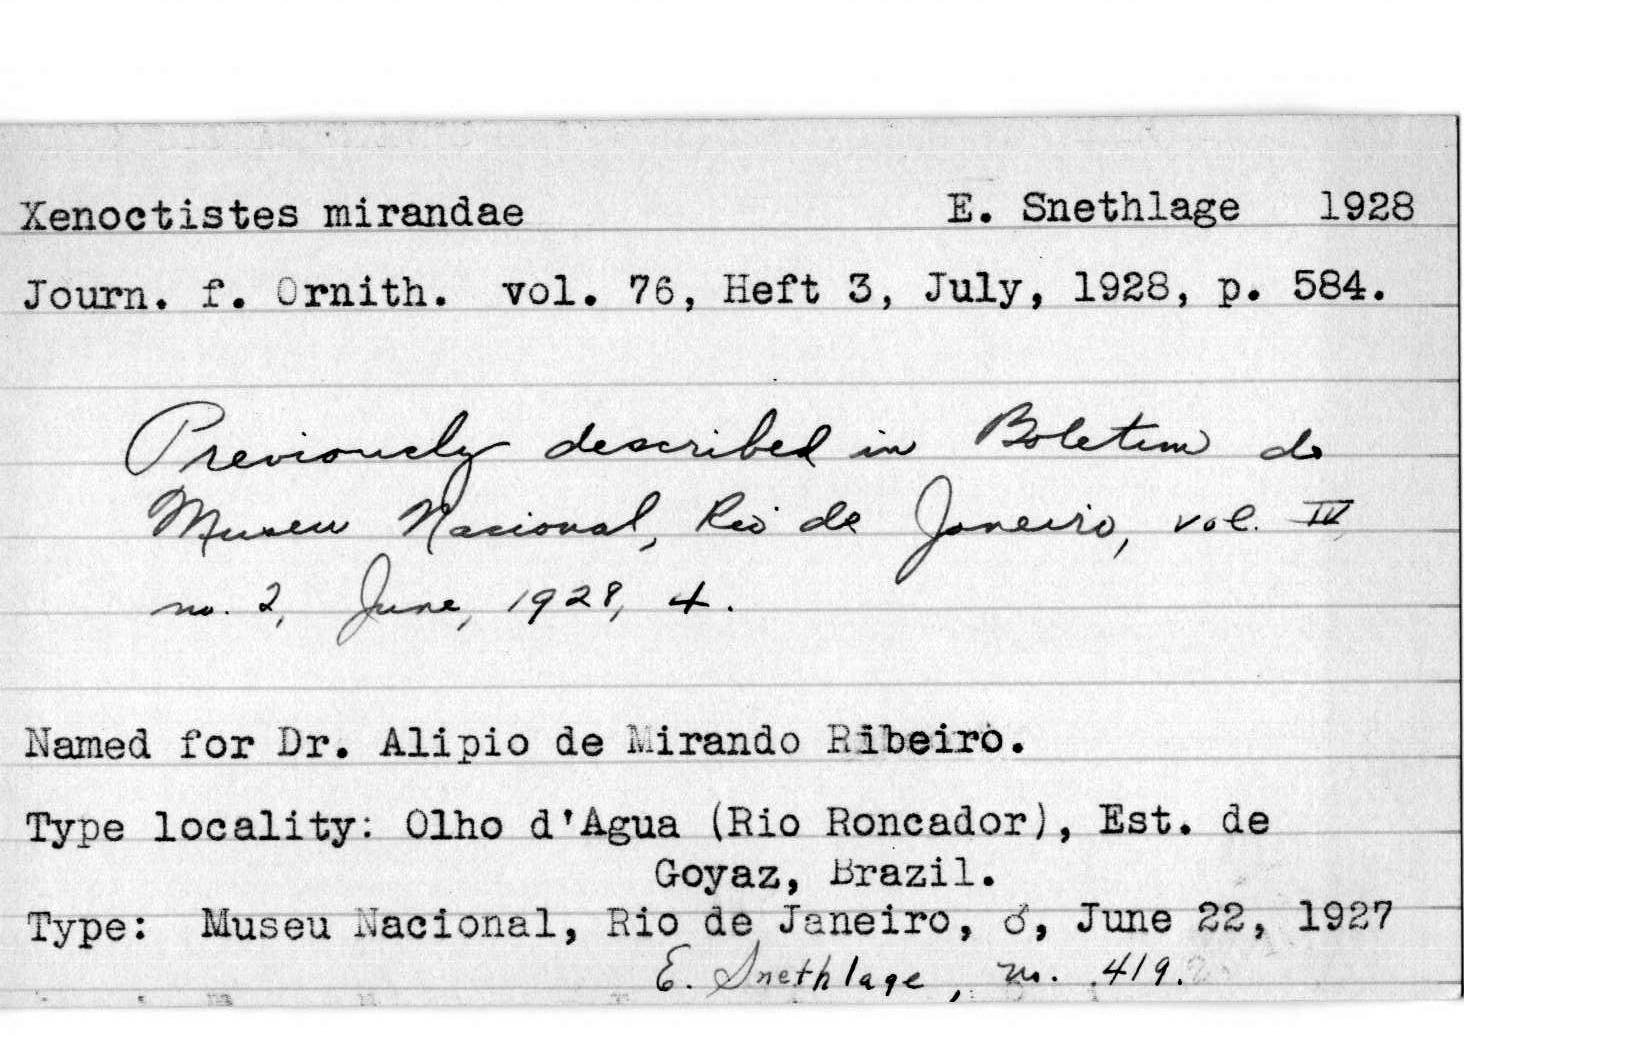 Xenoctistes mirandae E. Snethlage 1928
Journ. f. Ornith. vol. 76, Heft 3, July, 1928, p. 584.
Previously described in Boletim do
Museu Nacional, Rio de Janeiro, vol. IV,
no. 2, June, 1928, 4.
Named for Dr. Alipio de Mirando Ribeiro.
Type locality: Olho d'Agua (Rio Roncador), Est. de
Goyaz, Brazil.
Type: Museu Nacional, Rio de Janeiro, ♂, June 22, 1927
E. Snethlage, no. 419.